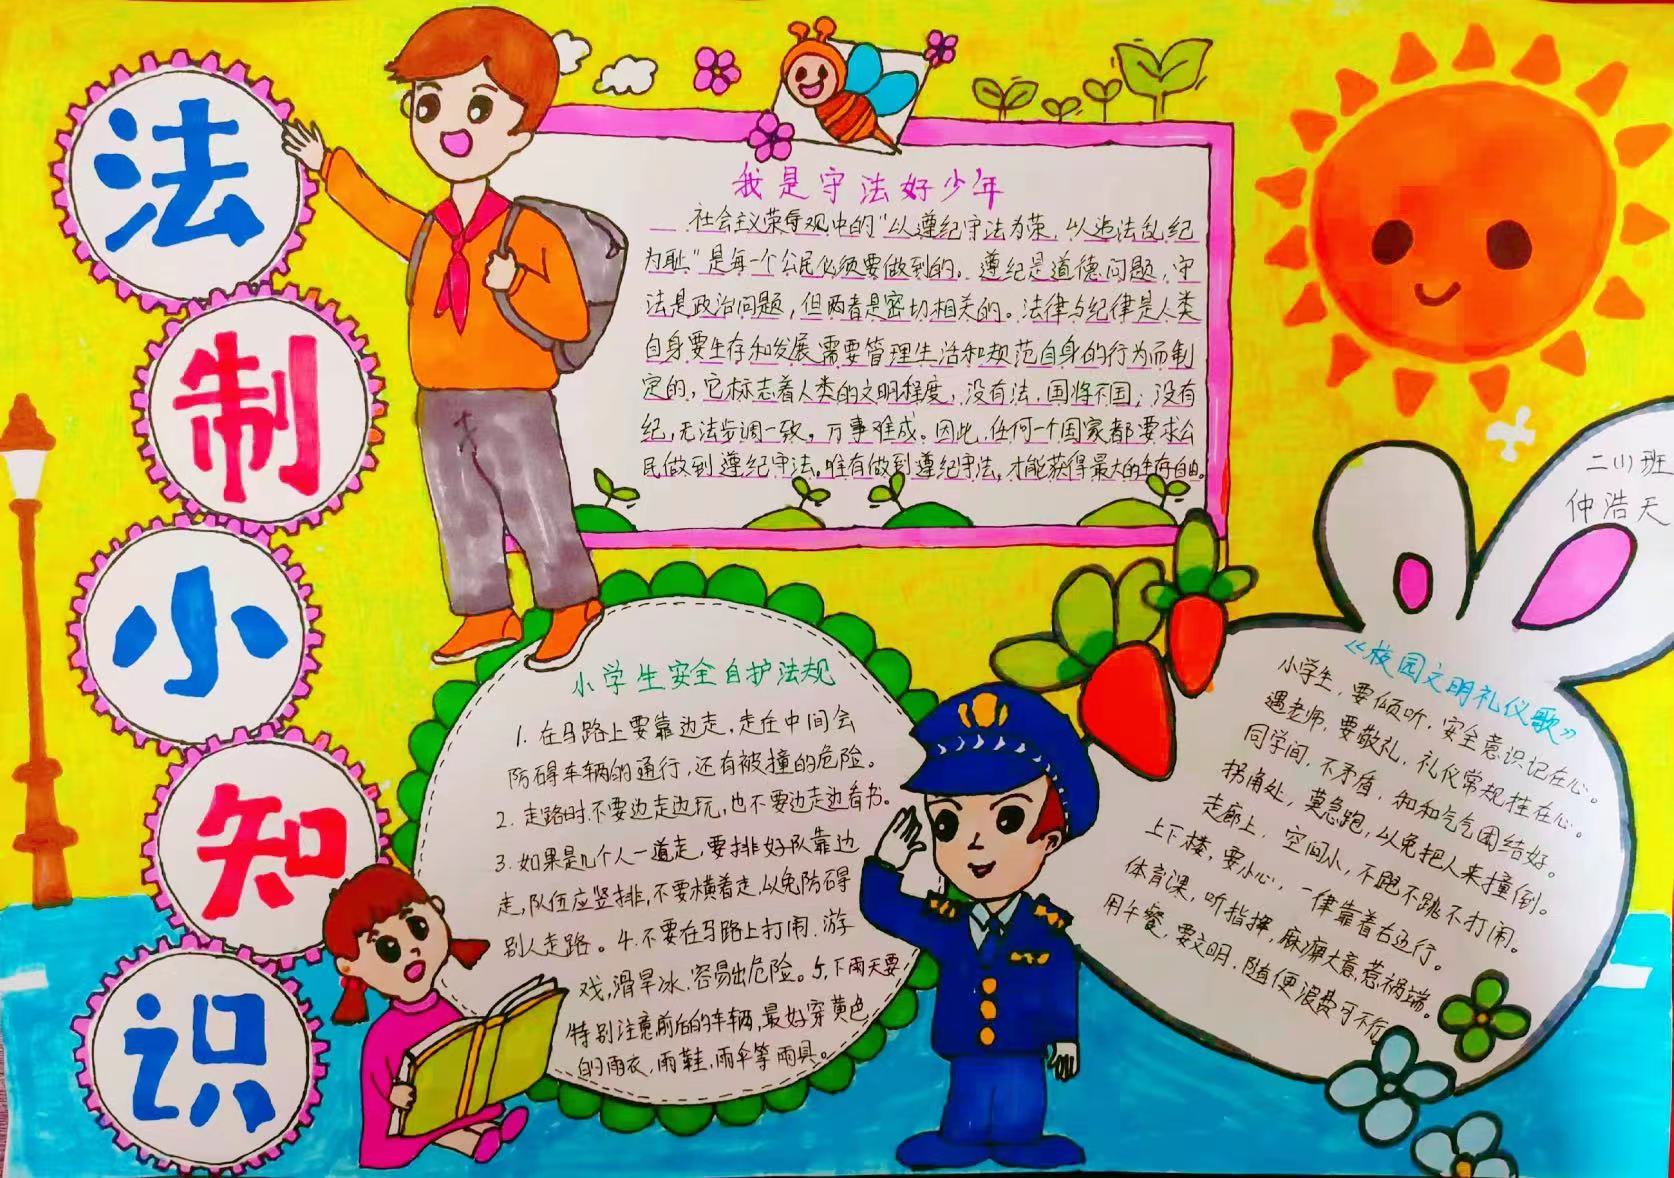 法
制
小
知
识
我是守法好少年
社会主义荣辱观中的“以遵纪守法为荣，以违法乱纪
为耻”是每一个公民必须要做到的。遵纪是道德问题，守
法是政治问题，但两者是密切相关的。法律与纪律是人类
自身要生存和发展需要管理生活和规范自身的行为而制
定的，它标志着人类的文明程度，没有法，国将不国；没有
纪，无法步调一致，万事难成。因此，任何一个国家都要求公
民做到遵纪守法。唯有做到遵纪守法，才能获得最大的生存自由。
二(1)班
仲浩天
小学生安全自护法规
1. 在马路上要靠边走，走在中间会
防碍车辆的通行，还有被撞的危险。
2. 走路时不要边走边玩，也不要边走边看书。
3. 如果是几个人一道走，要排好队靠边
走，队伍应竖排，不要横着走，以免防碍
别人走路。4. 不要在马路上打闹、游
戏，滑旱冰，容易出危险。5. 下雨天要
特别注意前后的车辆，最好穿黄色
的雨衣，雨鞋，雨伞等雨具。
《校园文明礼仪歌》
小学生，要倾听，安全意识记在心。
遇老师，要敬礼，礼仪常规挂在心。
同学间，不矛盾，和和气气团结好。
拐角处，莫急跑，以免把人来撞倒。
走廊上，空间小，不跑不跳不打闹。
上下楼，要小心，一律靠着右边行。
体育课，听指挥，麻痹大意惹祸端。
用午餐，要文明，随便浪费可不行。